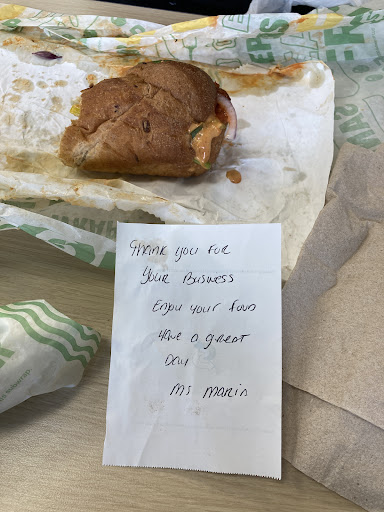 THANK YOU FOR
YOUR BUSINESS
ENJOY YOUR FOOD
HAVE A GREAT
DAY
MS MARIA